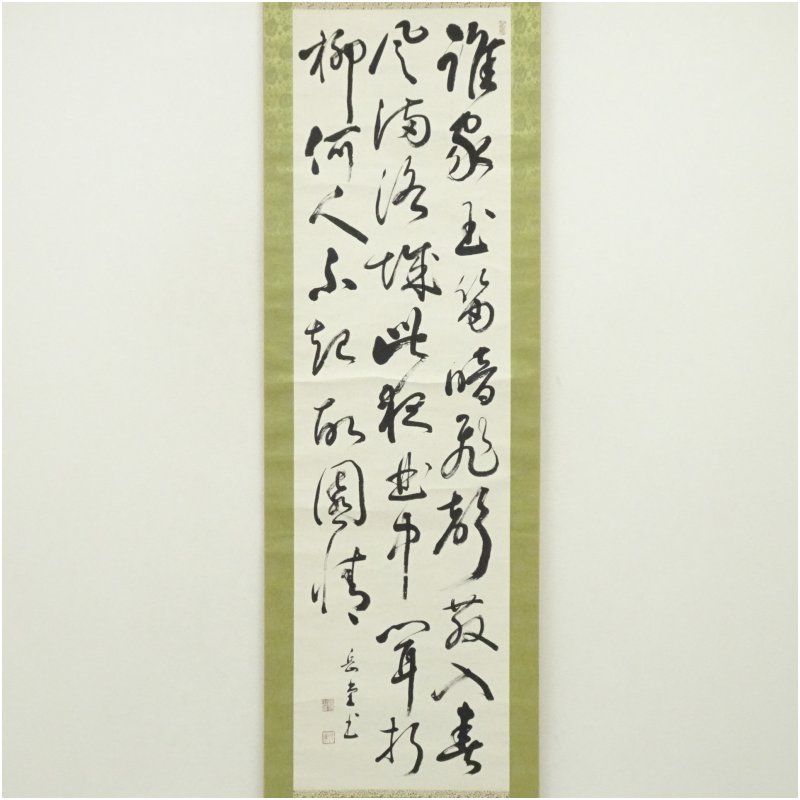 誰家玉笛暗飛聲散入春
風満洛城此夜曲中聞折
柳何人不起故園情
岳堂书